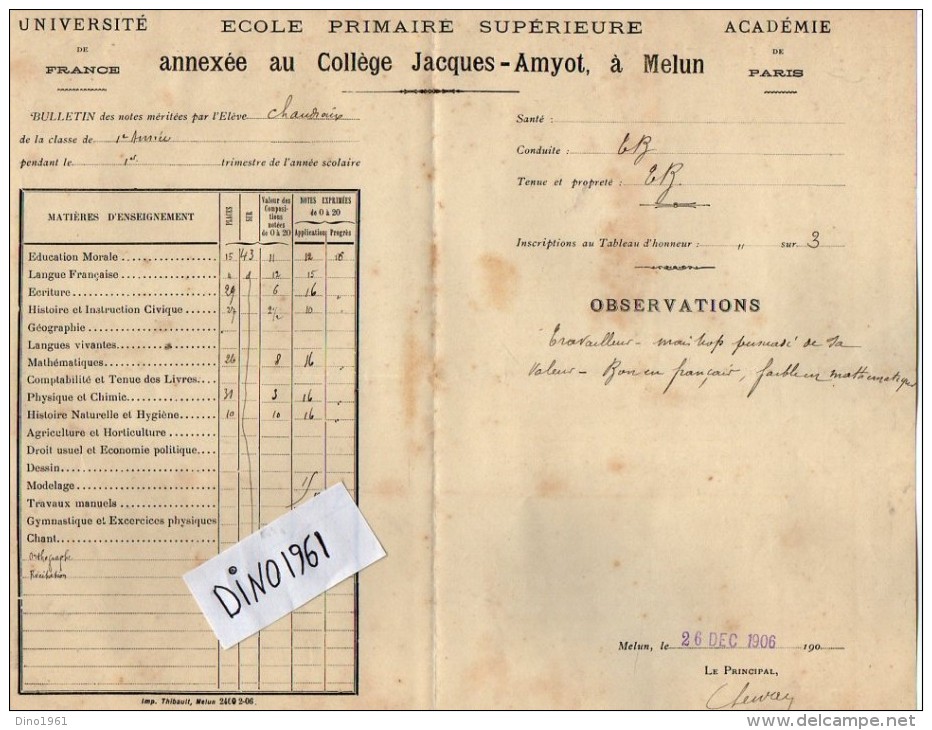 UNIVERSITÉ
DE
FRANCE
ECOLE PRIMAIRE SUPÉRIEURE
annexée au Collège Jacques-Amyot, à Melun
ACADÉMIE
DE
PARIS
BULLETIN des notes méritées par l'Elève
de la classe de 1re Année
pendant le 1er trimestre de l'année scolaire
MATIÈRES D'ENSEIGNEMENT PLACES SUR Valeur des Compositions notées de 0 à 20 NOTES EXPRIMÉES de 0 à 20 Application Progrès
Education Morale 15 43 11 12
Langue Française 12 15
Ecriture 29 6 16 "
Histoire et Instruction Civique 27 2 1/2 10 "
Géographie
Langues vivantes
Mathématiques 26 8 16 "
Comptabilité et Tenue des Livres
Physique et Chimie 31 3 16 "
Histoire Naturelle et Hygiène 10 10 16 "
Agriculture et Horticulture
Droit usuel et Economie politique
Dessin
Modelage
Travaux manuels
Gymnastique et Excercices physiques
Chant
Orthographe
Récitation
DiNO1961
Imp. Thibault, Melun 2400 2-06.
Santé :
Conduite : TB
Tenue et propreté : TB.
Inscriptions au Tableau d'honneur : " sur 3
OBSERVATIONS
Travailleur - mais trop persuadé de sa
valeur - Bon en français, faible en mathématiques
Melun, le 26 DEC 1906 190
LE PRINCIPAL,
Dino1961
http://www.delcampe.net